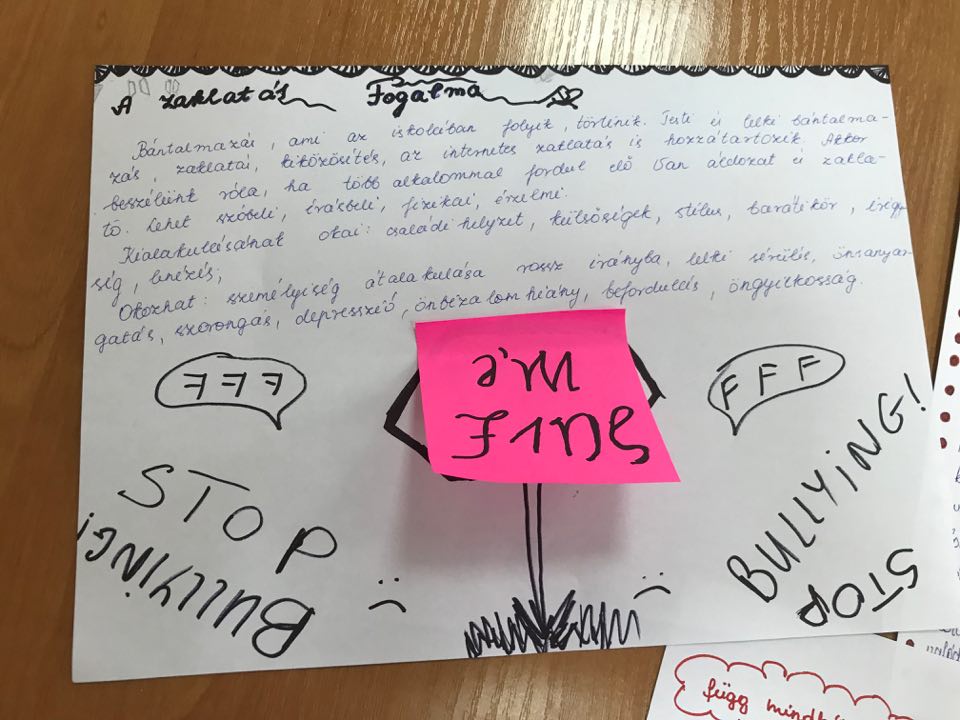 A zaklatás Fogalma
Bántalmazás, ami az iskolában folyik, történik. Testi és lelki bántalma-
zás, zaklatás, kiközösítés, az internetes zaklatás is hozzátartozik. Akkor
beszélünk róla, ha több alkalommal fordul elő Van áldozat és zakla-
tó. Lehet szóbeli, írásbeli, fizikai, érzelmi.
Kialakulásának okai: családi helyzet, külsőségek, stílus, baráti kör, irigy-
ség, lenézés;
Okozhat: személyiség átalakulása rossz irányba, lelki sérülés, önsanyar-
gatás, szorongás, depresszió, önbizalom hiány, befordulás, öngyilkosság.
FFF
FFF
STOP
BULLYiNG!
BULLYiNG!
STOP
függ